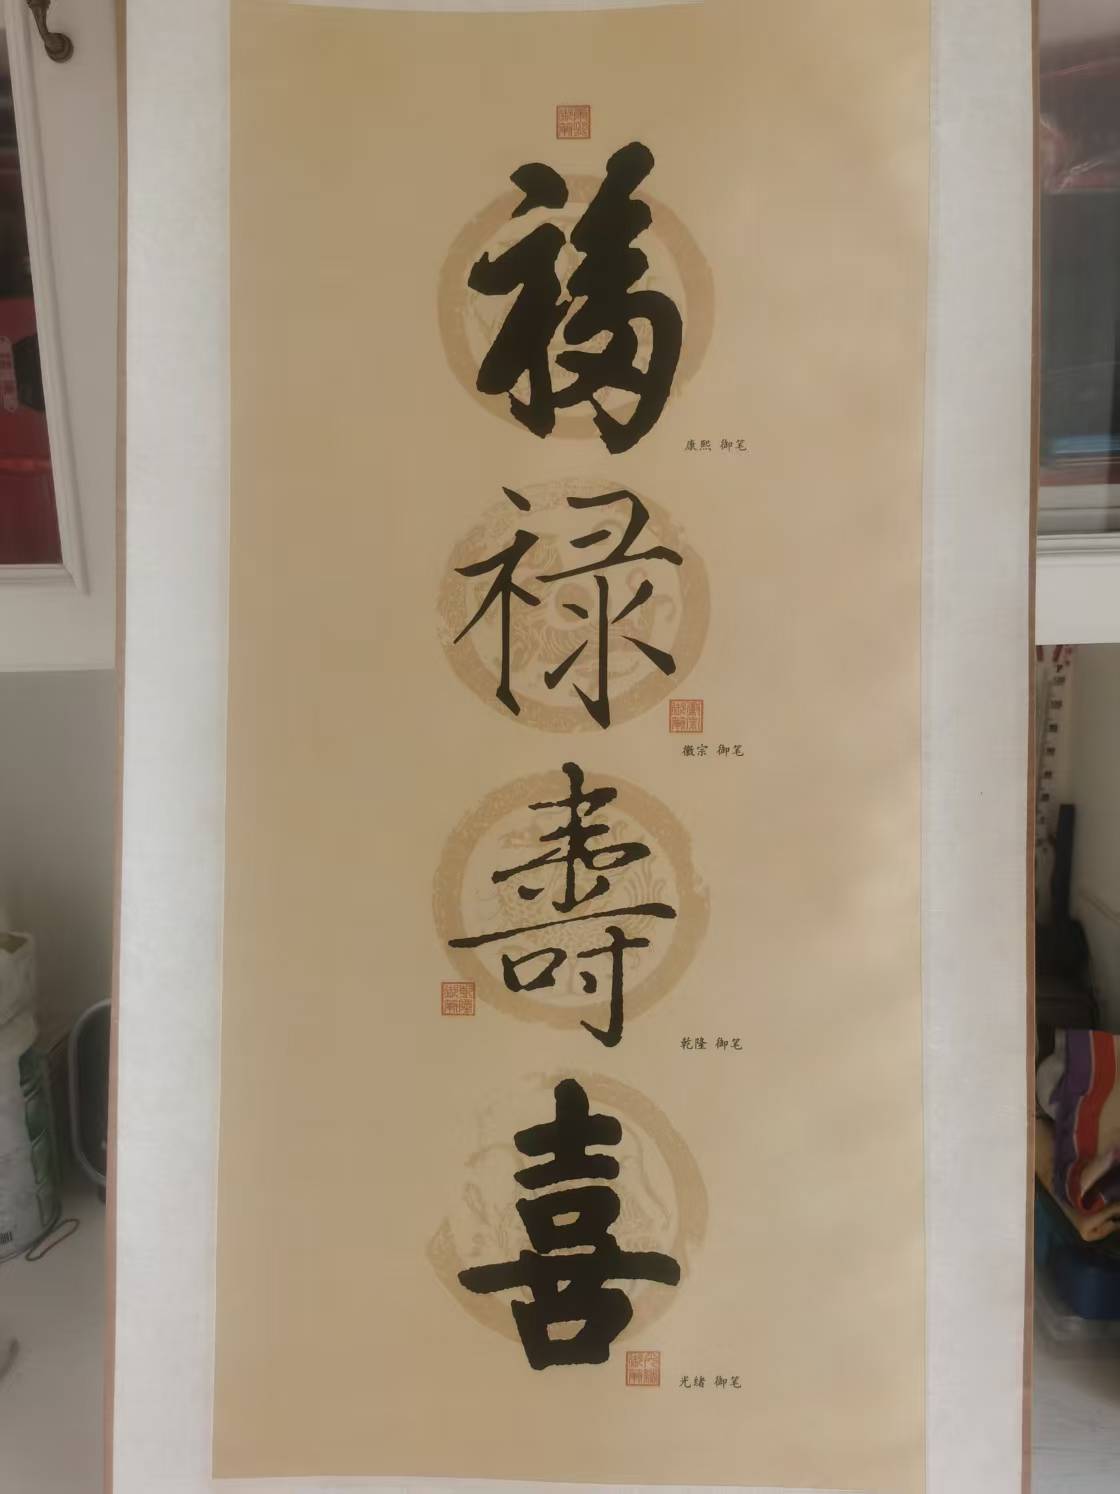 福
康熙 御笔
禄
徽宗 御笔
壽
乾隆 御笔
喜
光緒 御笔